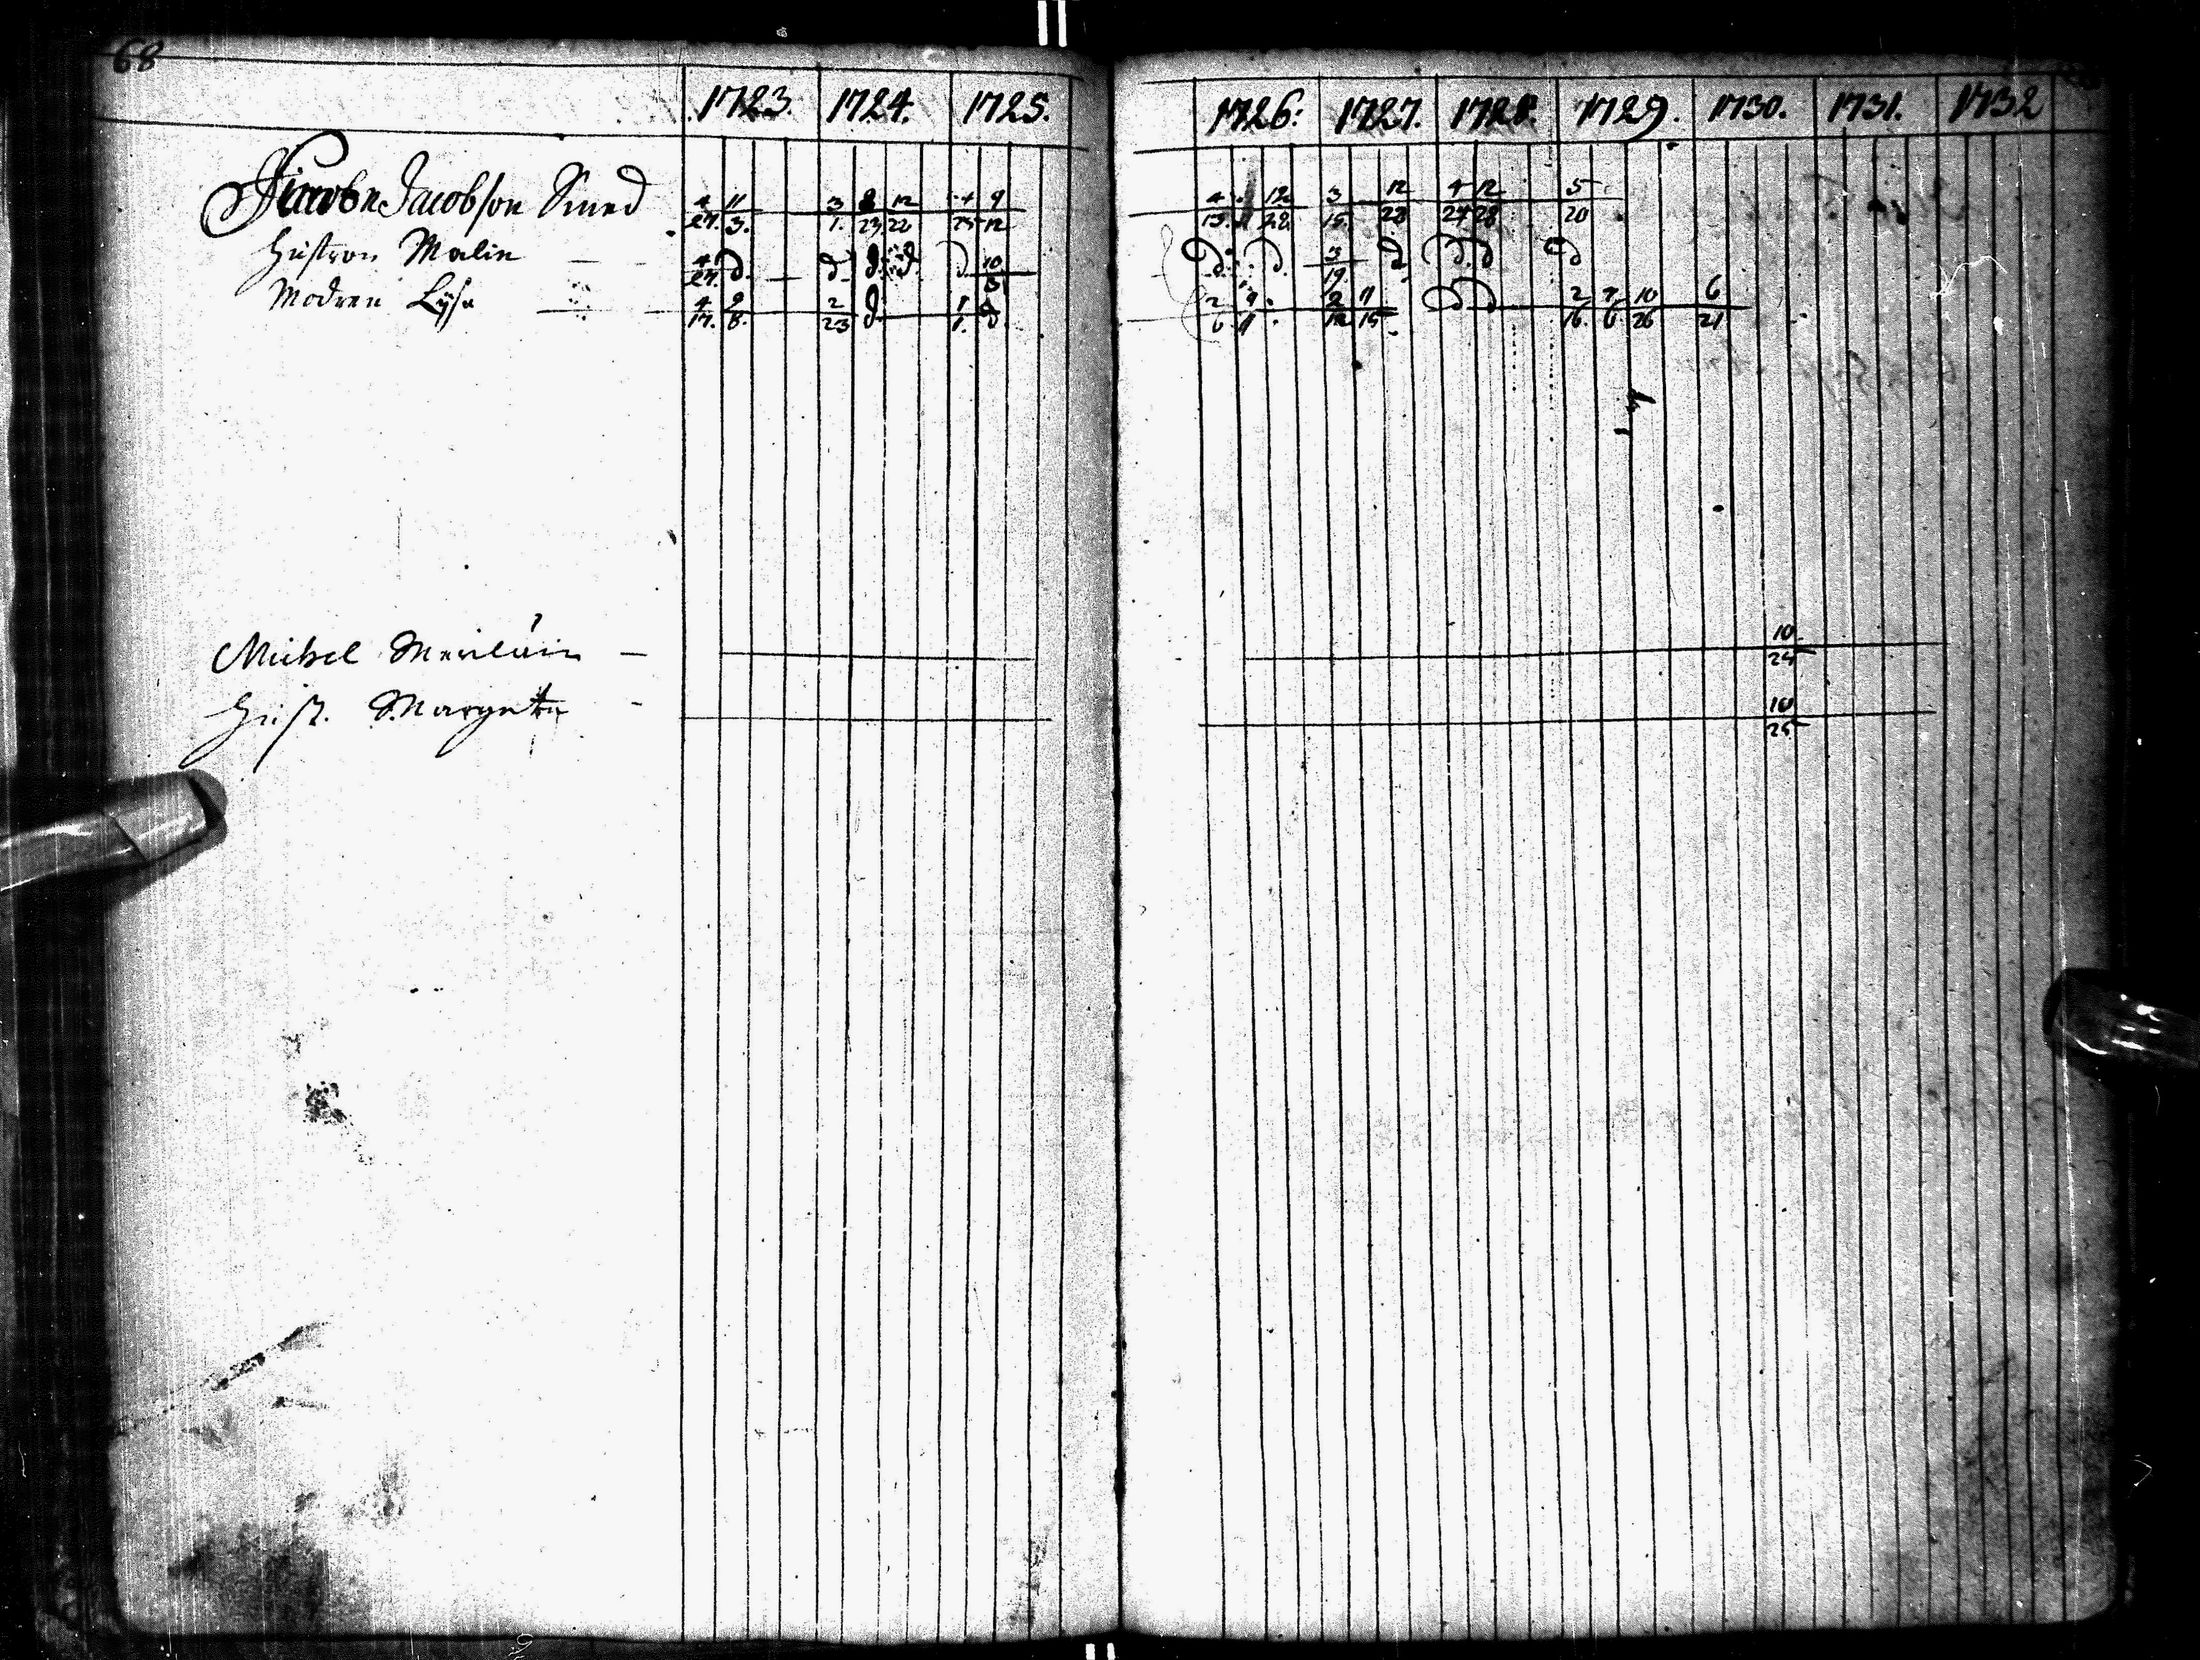 68
1723. 1724. 1725. 1726: 1727. 1728. 1729. 1730. 1731. 1732
Jacobson Smed 4 11 3 12 4 9 4 12 3 12 4 12 5
27. 3. 1. 23 22 25 12 13. 28 15. 28 27 28 20
Hustron Malin 4 d. d d d d 10 d. d. 3 d d. d d
27. 19.
Modren Lysa 4 9 2 d 1 d 2 9 2 11 2 7 10 6
17. 8. 23 1. 6 11 12 15 16. 6 26 21
Michel 10
24
Hust. Margeta 10
25